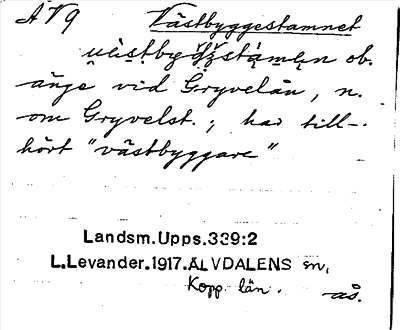 Av9 Västbyggestamnet
ob.
änge vid Gryvelån, n.
om Gryvelst.; har till-
hört "västbyggare"
Landsm.Upps.339:2
L.Levander.1917.ÄLVDALENS sn,
Kopp. län.
ås.